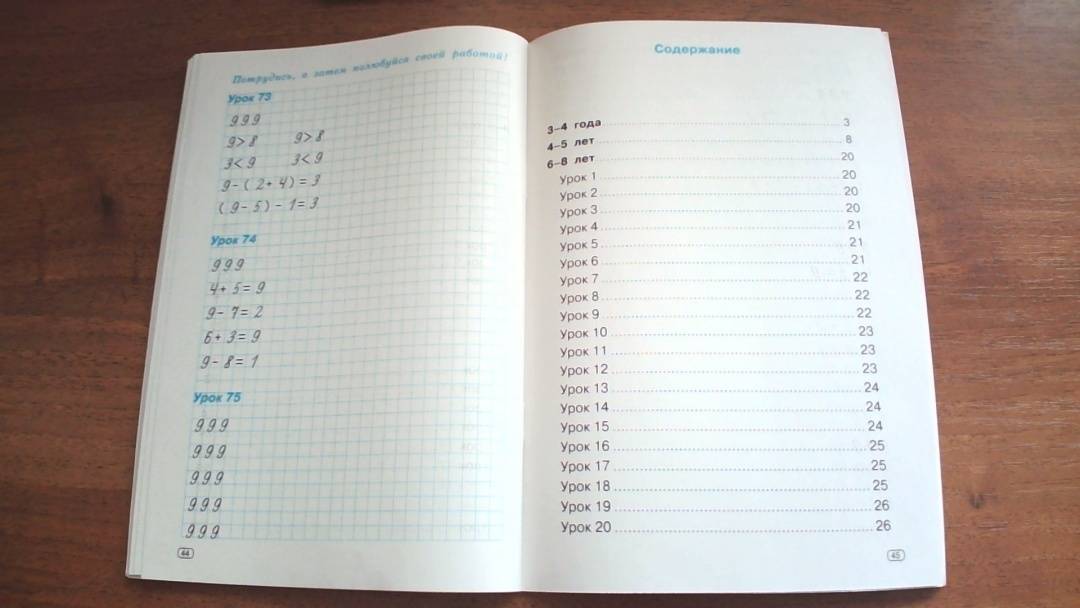 Потрудись, а затем полюбуйся своей работой!
Урок 73
999
9>8 9>8
3<9 3<9
9-(2+4)=3
(9-5)-1=3
Урок 74
999
4+5=9
9-7=2
6+3=9
9-8=1
Урок 75
999
999
999
999
999
44
Содержание
3–4 года 3
4–5 лет 8
6–8 лет 20
Урок 1 20
Урок 2 20
Урок 3 20
Урок 4 21
Урок 5 21
Урок 6 21
Урок 7 22
Урок 8 22
Урок 9 22
Урок 10 23
Урок 11 23
Урок 12 23
Урок 13 24
Урок 14 24
Урок 15 24
Урок 16 25
Урок 17 25
Урок 18 25
Урок 19 26
Урок 20 26
45